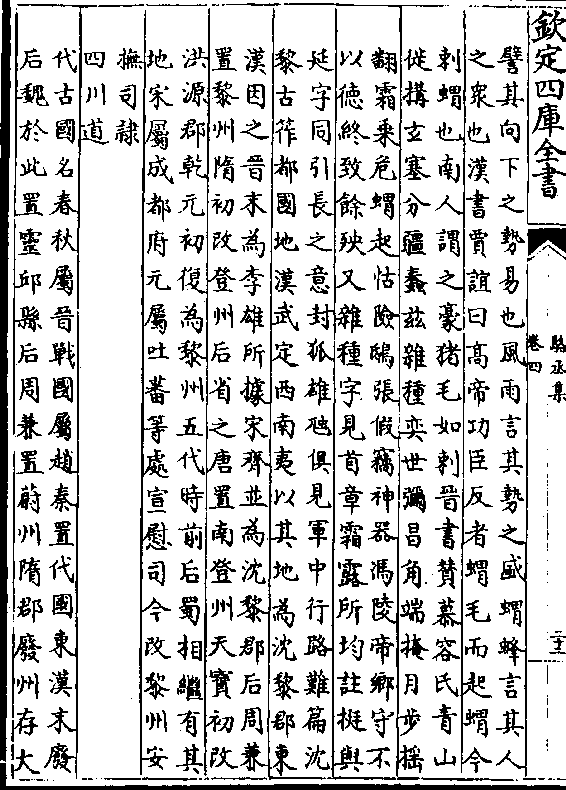 欽定四庫全書
駱丞集
卷四
譬其向下之勢易也風雨言其勢之盛蝟蜂言其人
之衆也漢書賈誼曰高帝功臣反者蝟毛而起蝟今
刺蝟也南人謂之豪猪毛如刺晉書贊慕容氏青山
徙構玄塞分疆蠢兹雜種奕世彌昌角端掩月步揺
翻霜乗危蝟起怙險鴟張假竊神器馮陵帝鄉守不
以德終致餘殃又雜種字見首章霜露所均註挻與
延字同引長之意封狐雄虺俱見軍中行路難篇沈
黎古筰都國地漢武定西南夷以其地為沈黎郡東
漢因之晉末為李雄所據宋齊並為沈黎郡后周兼
置黎州隋初改登州后省之唐置南登州天寳初改
洪源郡乾元初復為黎州五代時前后蜀相繼有其
地宋屬成都府元屬吐蕃等處宣慰司今改黎州安
撫司隷
四川道
代古國名春秋屬晉戰國屬趙秦置代國東漢末廢
后魏於此置靈邱縣后周兼置蔚州隋郡廢州存大